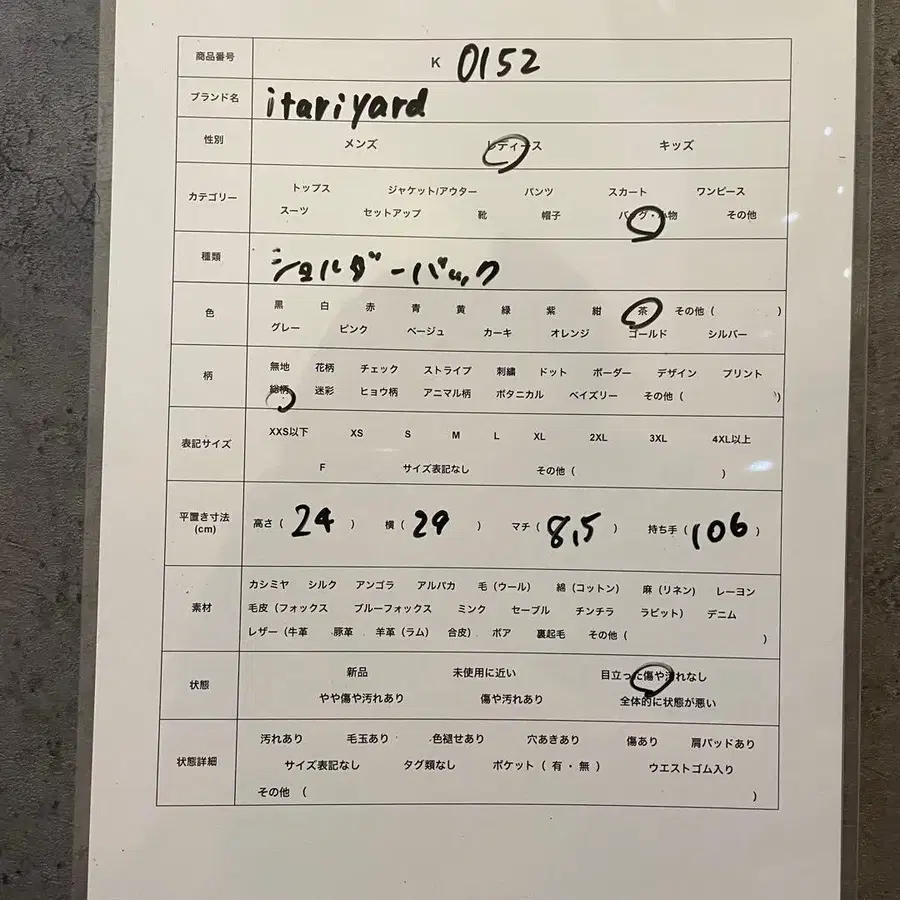 商品番号 K 0152
ブランド名 itariyard
性別 メンズ レディース キッズ
カテゴリー
トップス ジャケット/アウター パンツ スカート ワンピース
スーツ セットアップ 靴 帽子 バッグ・小物 その他
種類 ショルダーバック
色
黒 白 赤 青 黄 緑 紫 紺 茶 その他 ( )
グレー ピンク ベージュ カーキ オレンジ ゴールド シルバー
柄
無地 花柄 チェック ストライプ 刺繍 ドット ボーダー デザイン プリント
総柄 迷彩 ヒョウ柄 アニマル柄 ボタニカル ペイズリー その他 ( )
表記サイズ
XXS以下 XS S M L XL 2XL 3XL 4XL以上
F サイズ表記なし その他 ( )
平置き寸法
(cm)
高さ ( 24 ) 横 ( 29 ) マチ ( 8,5 ) 持ち手 ( 106 )
素材
カシミヤ シルク アンゴラ アルパカ 毛 (ウール) 綿 (コットン) 麻 (リネン) レーヨン
毛皮 (フォックス ブルーフォックス ミンク セーブル チンチラ ラビット) デニム
レザー (牛革 豚革 羊革 (ラム) 合皮) ボア 裏起毛 その他 ( )
状態
新品 未使用に近い 目立った傷や汚れなし
やや傷や汚れあり 傷や汚れあり 全体的に状態が悪い
状態詳細
汚れあり 毛玉あり 色褪せあり 穴あきあり 傷あり 肩パッドあり
サイズ表記なし タグ類なし ポケット ( 有 ・ 無 ) ウエストゴム入り
その他 ( )